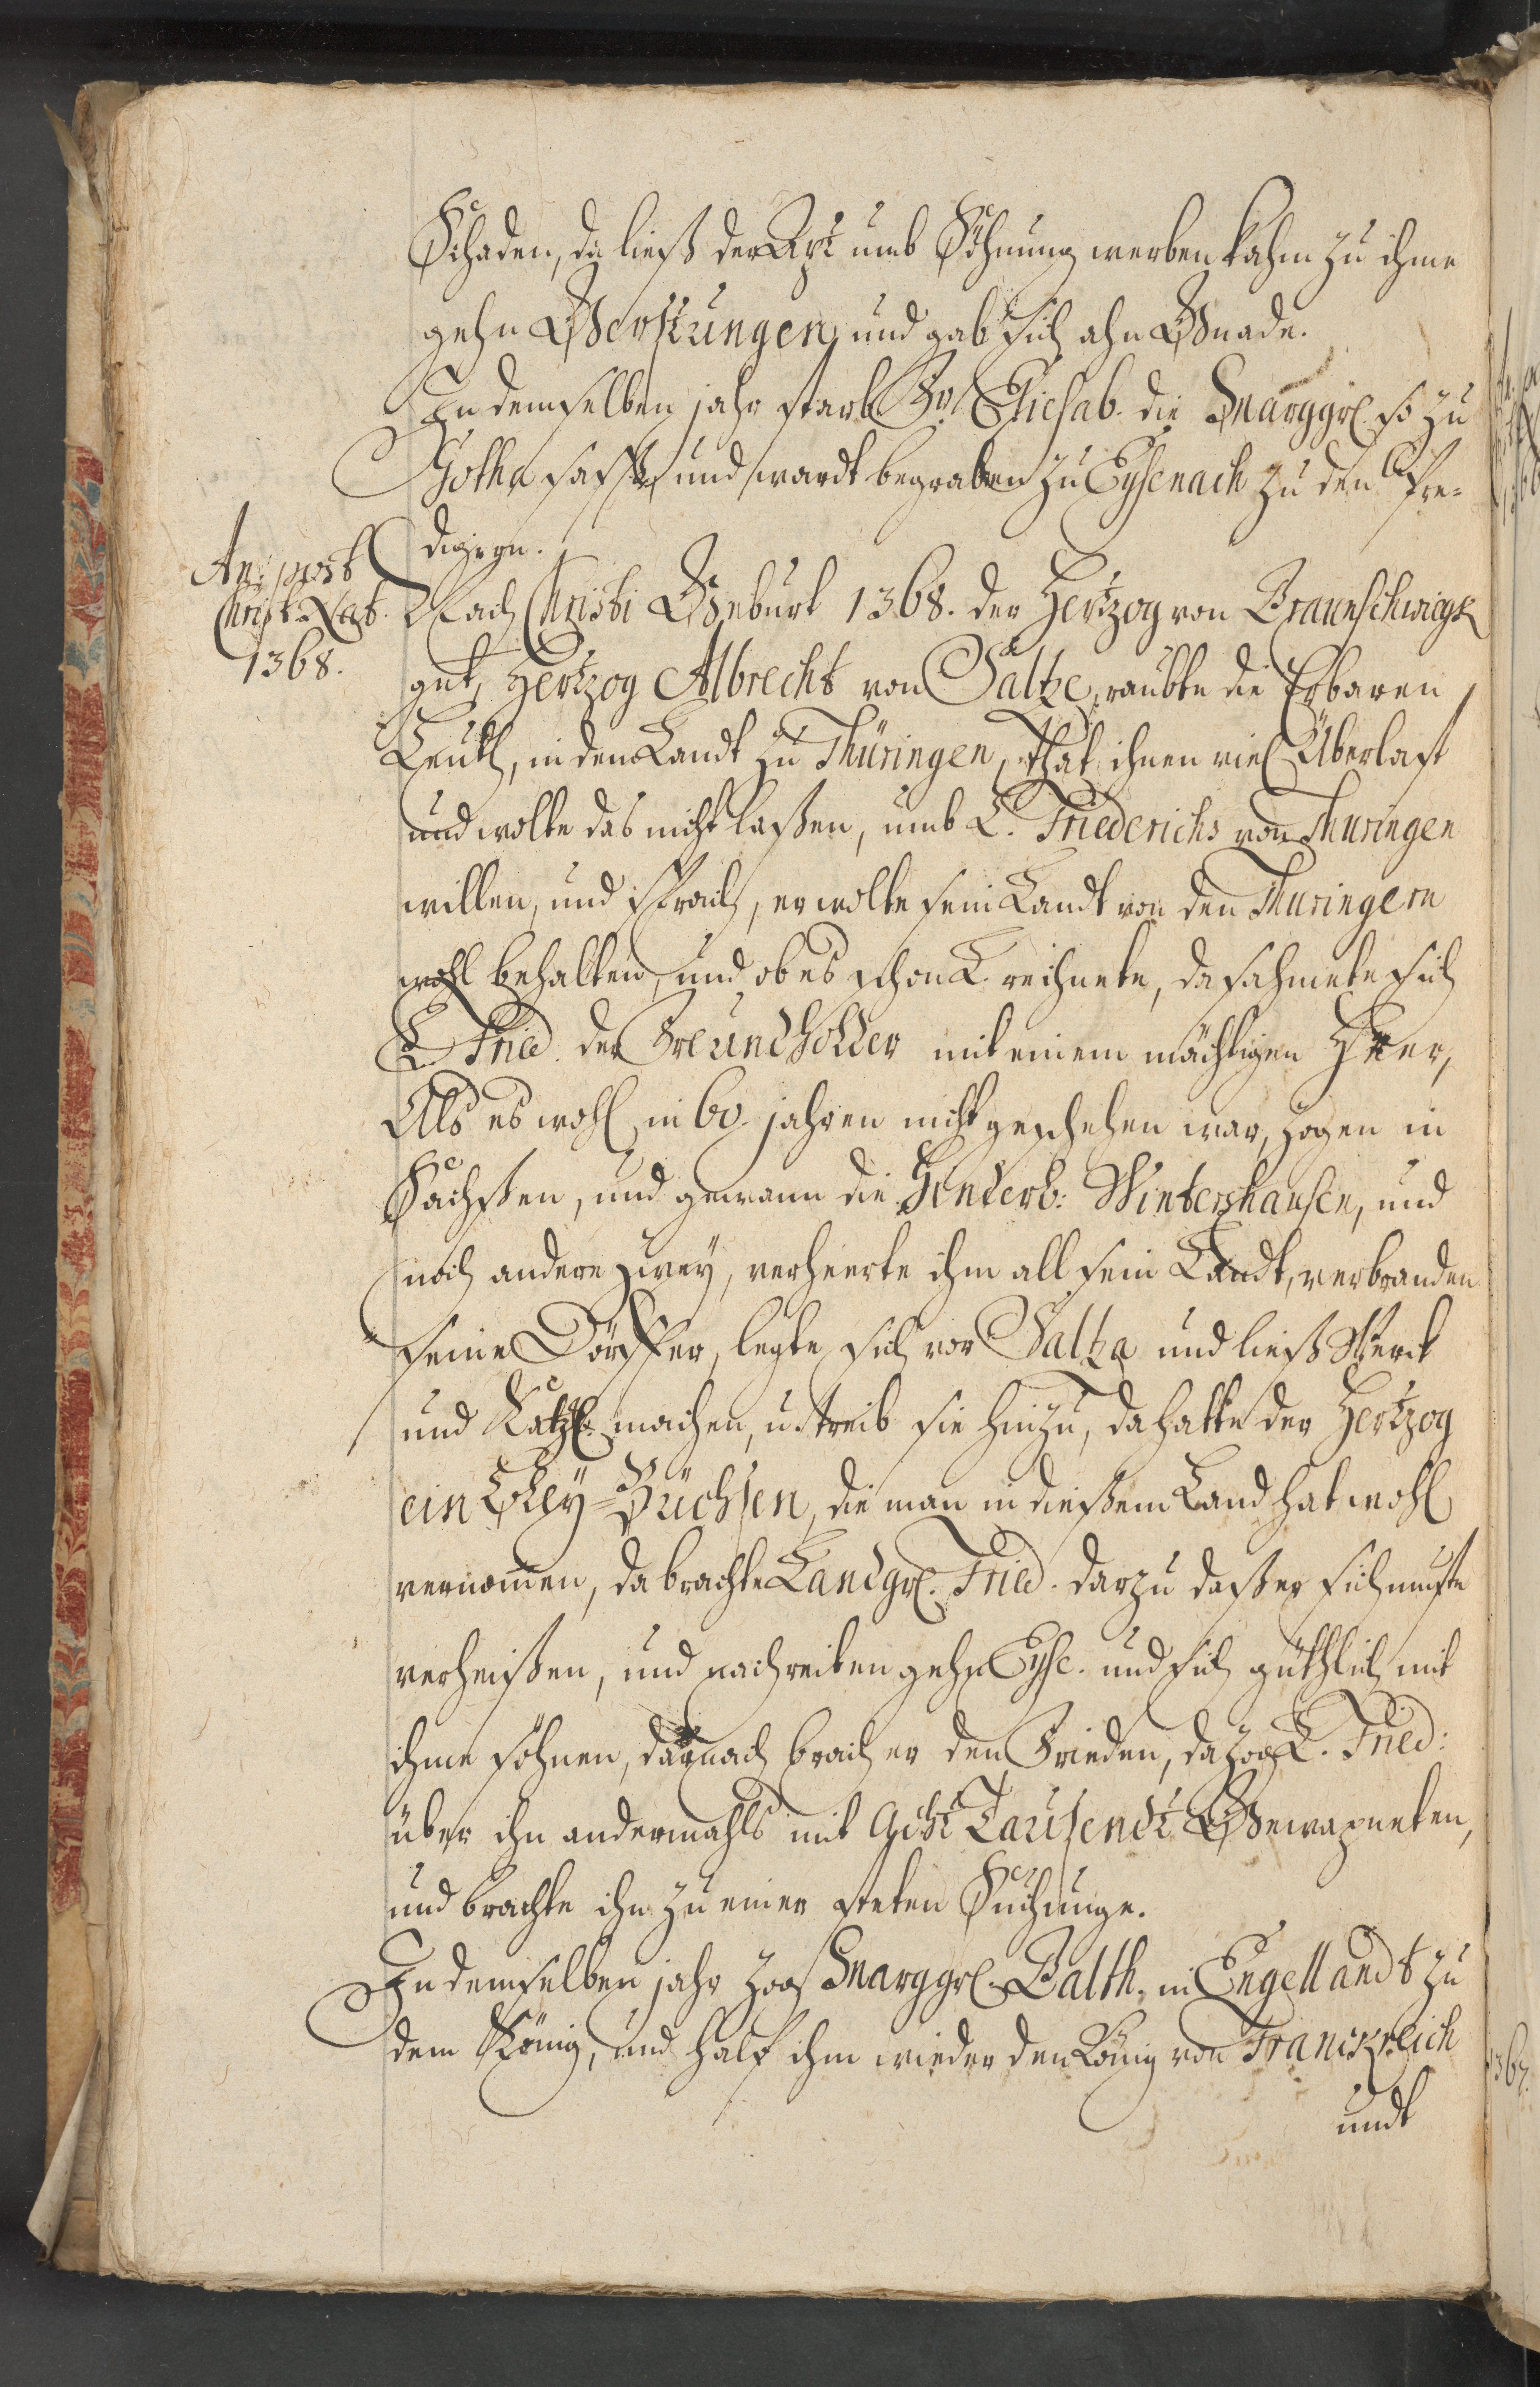 Schaden, da ließ der Apt umb Söhnung werben kahm zu ihme
gehn Gerstungen, und gab sich ahn Gnade.
In demselben jahr starb Fr. Eliesab. die Marggrf. so zu
Gotha sasse, und wardt begraben zu Eysenach zu den Pre-
digern.
An: post
Christ. Nat.
1368.
Nach Christi Geburt 1368. der Hertzog von Braunschwiegk
gnt. Hertzog Albrecht von Saltze, raubte die Erbaren
Leuth, in den Landt zu Thüringen, that ihnen viel Überlast
und wolte das nicht laßen, umb L. Friederichs von Thuringen
willen, und sprach, er wolte sein Landt von den Thuringern
wohl behalten, und ob es schon L. rechnete, da sahmete sich
L. Fried. der Freundholder mit einem mächtigen Heer,
Als es wohl in 60. jahren nicht geschehen war, zogen in
Sachßen, und gewann die Hinderb: Wintershausen, und
noch andere zwey, verheerte ihm all sein Landt, verbranden
seine Dörffer, legte sich vor Saltza und ließ Werck
und Katzen machen, u. treib sie hinzu, da hatte der Hertzog
ein Bley-Büchsen, die man in dießem Land hat wohl
vernommen, da brachte Landgrf. Fried. darzu daß er sich muste
verheißen, und nachreiten gehn Eyse. und sich güthlich mit
ihme söhnen, darnach brach er den Frieden, da zog L. Fried:
über ihn andermahls mit Acht Tausendt Gewapneten,
und brachte ihn zu einer steten Suchunge.
In demselben jahr zog Marggrf. Balth. in Engellandt zu
dem König, und half ihm wieder den König von Franckreich
undt